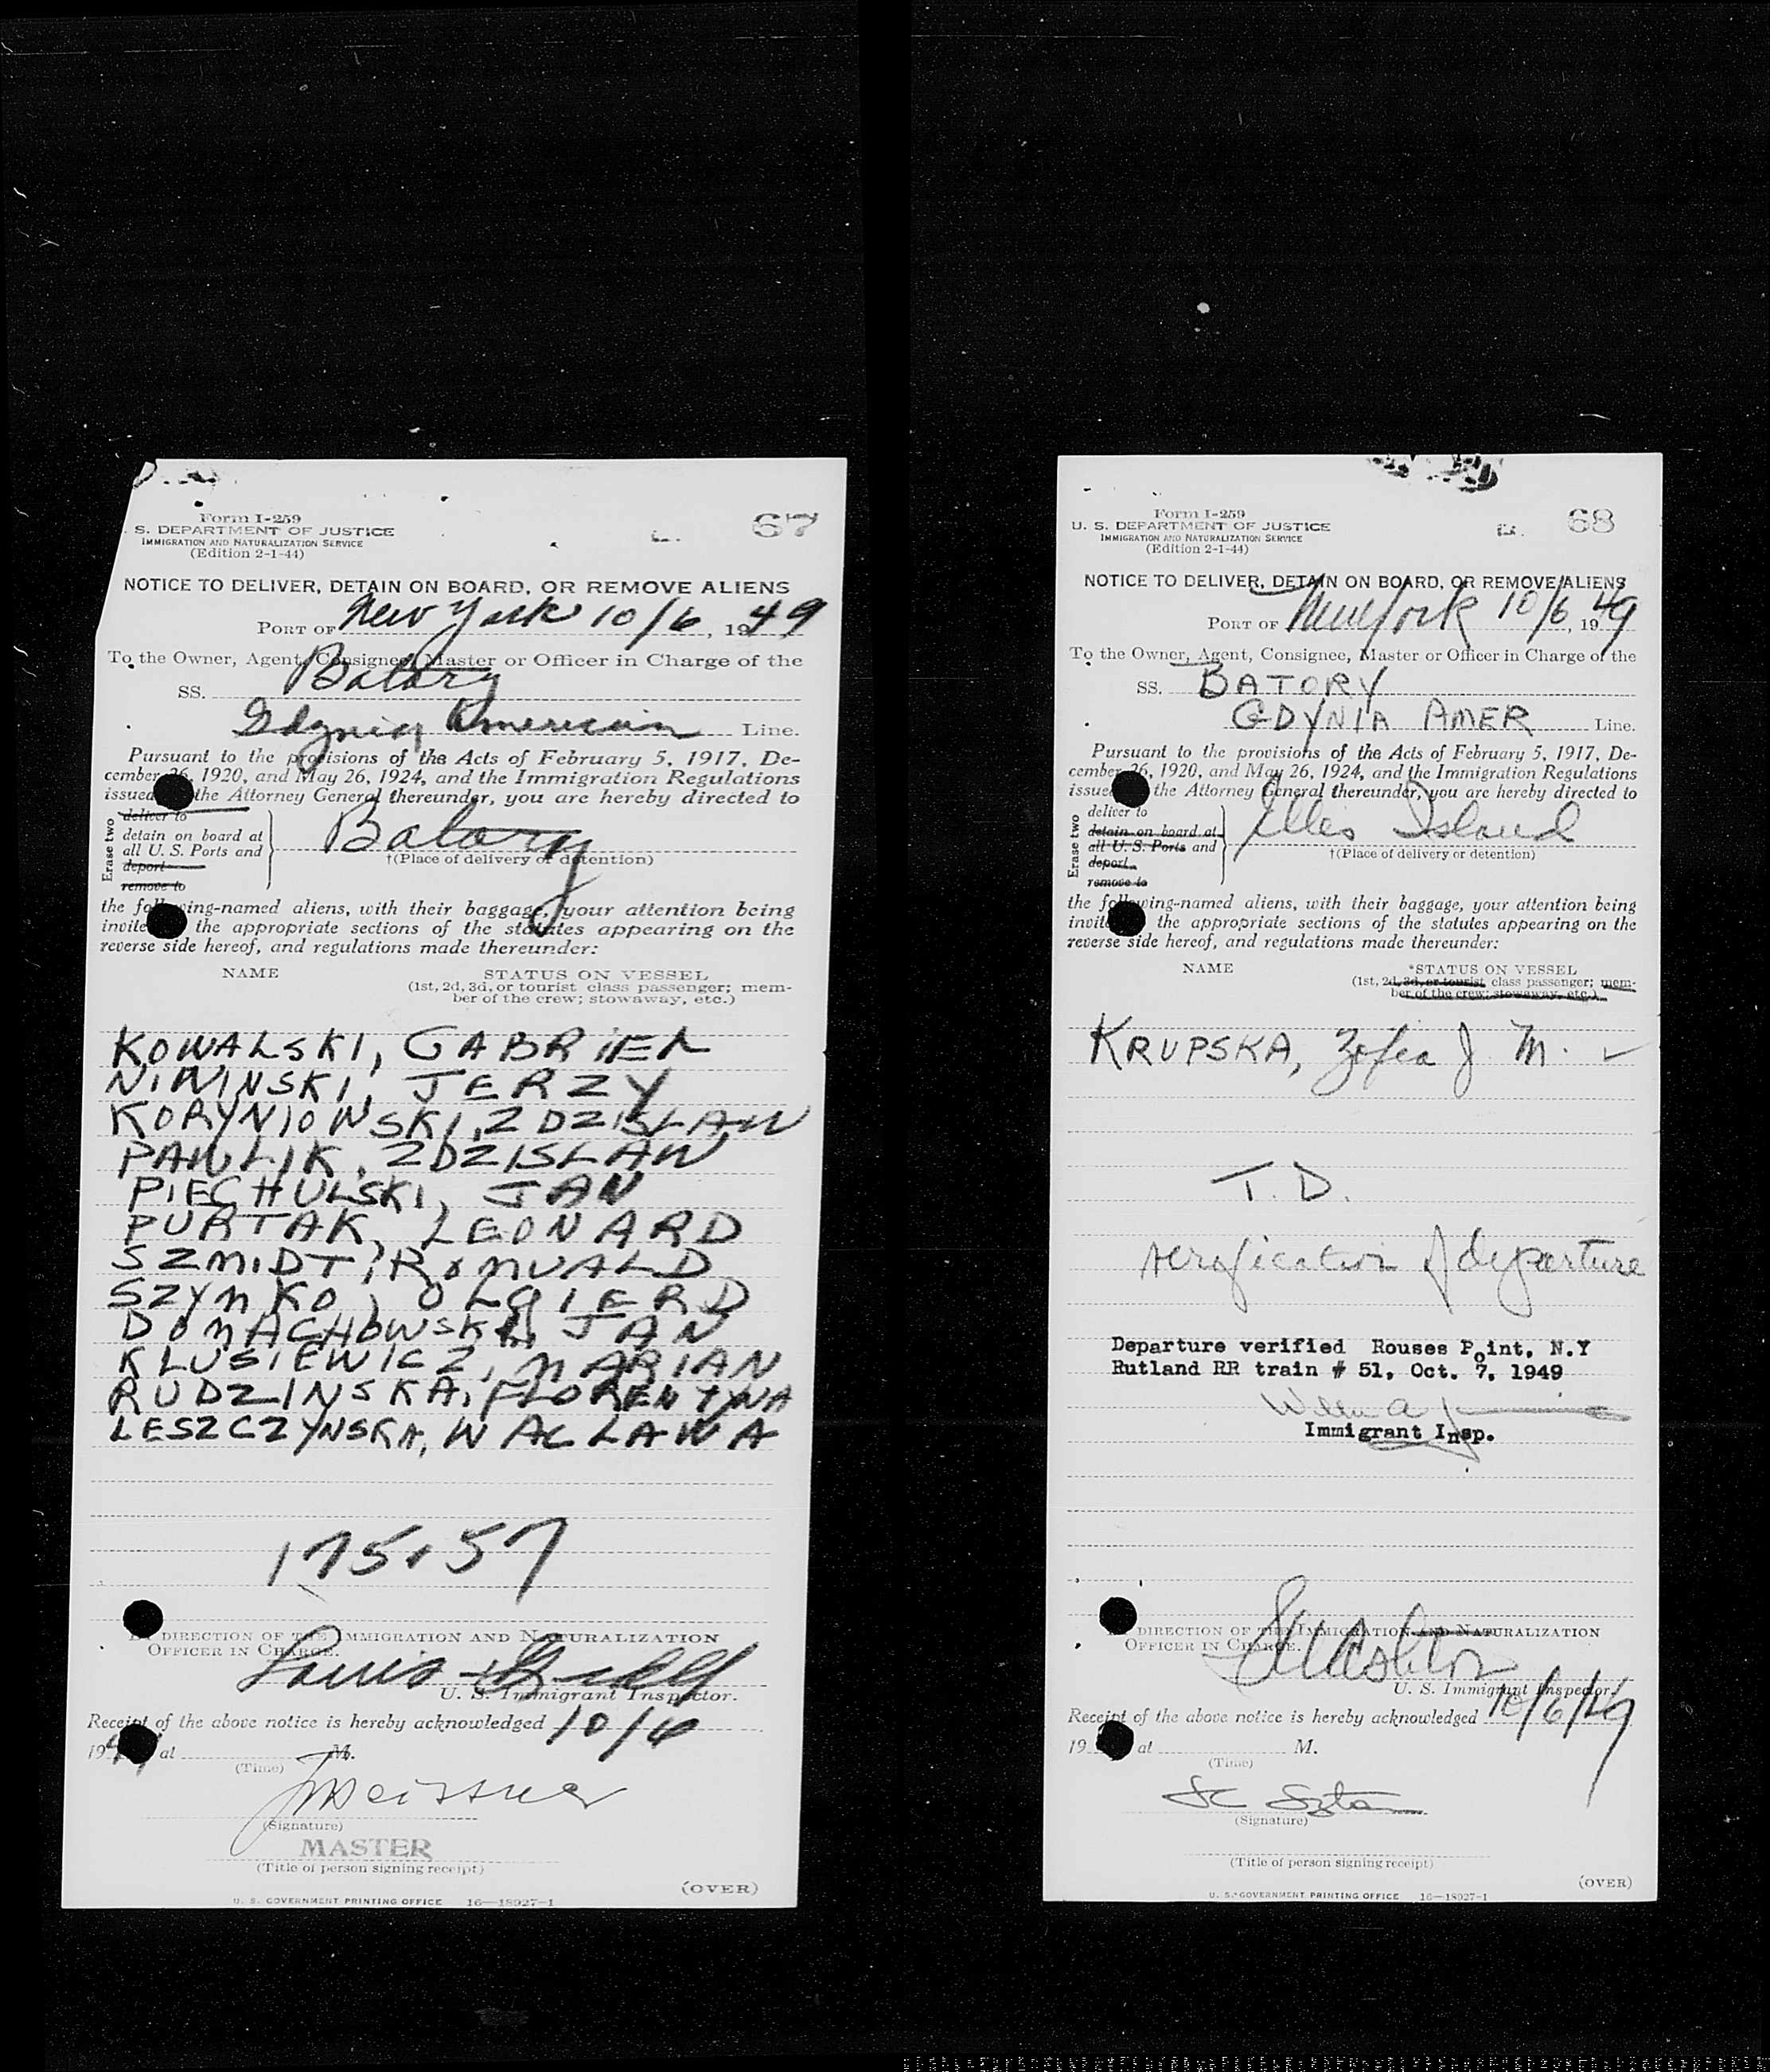 Form I-259
S. DEPARTMENT OF JUSTICE
IMMIGRATION AND NATURALIZATION SERVICE
(Edition 2-1-44)
67
NOTICE TO DELIVER, DETAIN ON BOARD, OR REMOVE ALIENS
PORT OF New York 10/6, 1949
To the Owner, Agent, Consignee, Master or Officer in Charge of the
SS. Batory
Gdynia American Line.
Pursuant to the provisions of the Acts of February 5, 1917, De-
cember 26, 1920, and May 26, 1924, and the Immigration Regulations
issued the Attorney General thereunder, you are hereby directed to
Erase two
deliver to
detain on board at
all U. S. Ports and
deport
remove to
Batory
†(Place of delivery or detention)
the following-named aliens, with their baggage, your attention being
invite the appropriate sections of the statutes appearing on the
reverse side hereof, and regulations made thereunder:
NAME STATUS ON VESSEL
(1st, 2d, 3d, or tourist class passenger; mem-
ber of the crew; stowaway, etc.)
KOWALSKI, GABRIEL
NIWINSKI, JERZY
KORYNIOWSKI, ZDZISLAW
PAWLIK, ZDZISLAW
PIECHULSKI, JAN
PURTAK, LEONARD
SZMIDT, ROMUALD
SZYMKO, OLGIERD
DOMACHOWSKI, JAN
KLUSIEWICZ, MARIAN
RUDZINSKA, FLORENTYNA
LESZCZYNSKA, WACLAWA
175.57
DIRECTION OF THE IMMIGRATION AND NATURALIZATION
OFFICER IN CHARGE.
Louis
U. S. Immigrant Inspector.
Receipt of the above notice is hereby acknowledged 10/6
194 at M.
(Time)
Meissner
(Signature)
MASTER
(Title of person signing receipt)
(OVER)
U. S. GOVERNMENT PRINTING OFFICE 16—18927-1
Form I-259
U. S. DEPARTMENT OF JUSTICE
IMMIGRATION AND NATURALIZATION SERVICE
(Edition 2-1-44)
68
NOTICE TO DELIVER, DETAIN ON BOARD, OR REMOVE ALIENS
PORT OF New York 10/6, 1949
To the Owner, Agent, Consignee, Master or Officer in Charge of the
SS. BATORY
GDYNIA AMER Line.
Pursuant to the provisions of the Acts of February 5, 1917, De-
cember 26, 1920, and May 26, 1924, and the Immigration Regulations
issue the Attorney General thereunder, you are hereby directed to
Erase two
deliver to
detain on board at
all U. S. Ports and
deport
remove to
Ellis Island
†(Place of delivery or detention)
the following-named aliens, with their baggage, your attention being
invite the appropriate sections of the statutes appearing on the
reverse side hereof, and regulations made thereunder:
NAME *STATUS ON VESSEL
(1st, 2d, 3d, or tourist class passenger; mem-
ber of the crew; stowaway, etc.)
KRUPSKA, Zofia J. M. ✓
T.D.
verification of departure
Departure verified Rouses Point, N.Y
Rutland RR train # 51, Oct. 7, 1949
Immigrant Insp.
DIRECTION OF THE IMMIGRATION AND NATURALIZATION
OFFICER IN CHARGE.
U. S. Immigrant Inspector
Receipt of the above notice is hereby acknowledged 10/6/49
19 at M.
(Time)
(Signature)
(Title of person signing receipt)
(OVER)
U. S. GOVERNMENT PRINTING OFFICE 16—18927-1